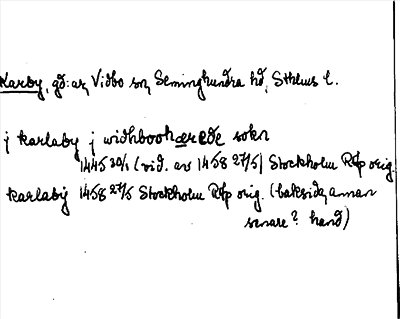 Karby, gd:ar, Vidbo sn, Seminghundra hd, Sthlms l.
j karlaby j widhboohærede sokn
1445 30/1 (vid. av 1458 27/5) Stockholm RAp orig.
karlabÿ 1458 27/5 Stockholm RAp orig. (baksida, annan
senare? hand)